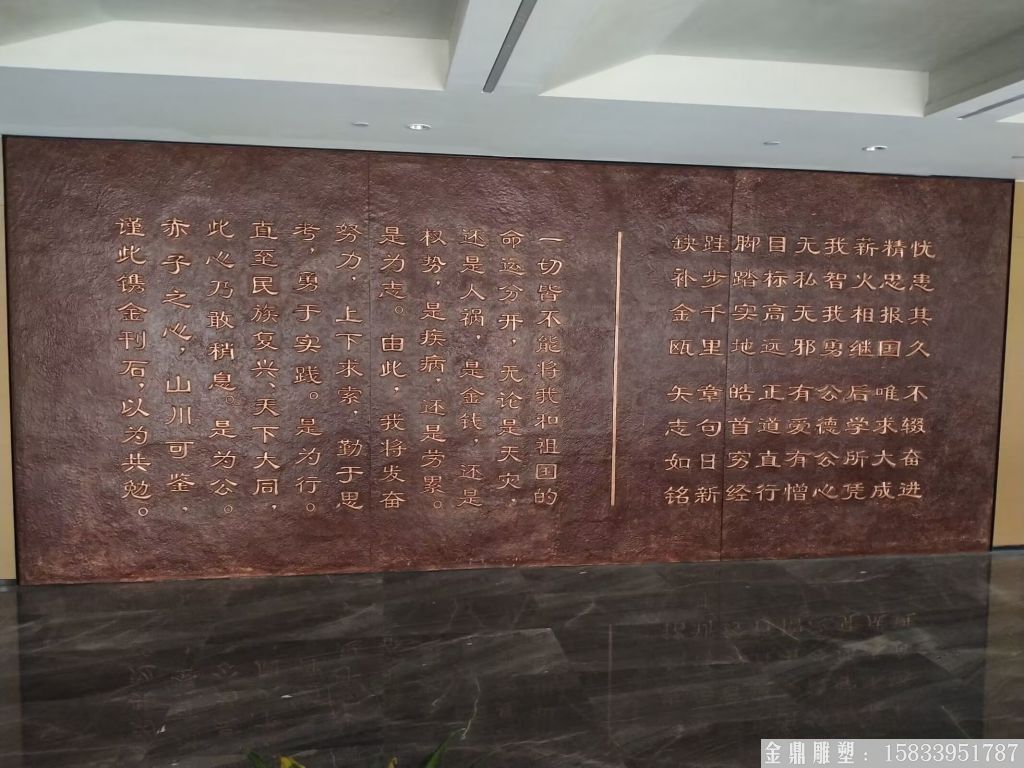 忧患其久 不辍奋进
精忠报国 唯求大成
薪火相继 后学所凭
我智我勇 公德公心
无私无邪 有爱有憎
目标高远 正道直行
脚踏实地 皓首穷经
跬步千里 章句日新
缺补金瓯 矢志如铭
一切皆不能将我和祖国的
命运分开，无论是天灾，
还是人祸，是金钱，还是
权势，是疾病，还是劳累。
是为志。由此，我将发奋
努力，上下求索，勤于思
考，勇于实践。是为行。
直至民族复兴、天下大同，
此心乃敢稍息。是为公。
赤子之心，山川可鉴，
谨此镌金刊石，以为共勉。
金鼎雕塑：15833951787